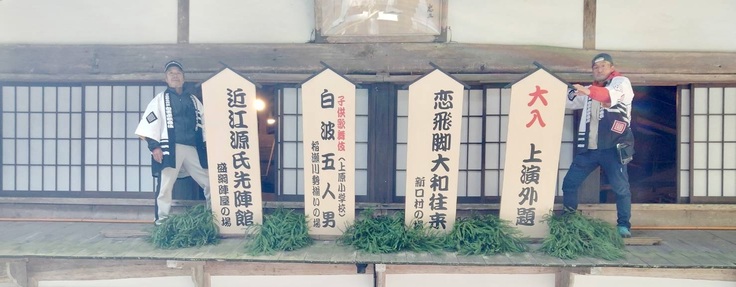 大入 上演外題
恋飛脚大和往来
新口村の場
子供歌舞伎(上原小学校)
白波五人男
稲瀬川勢揃いの場
近江源氏先陣館
盛綱陣屋の場